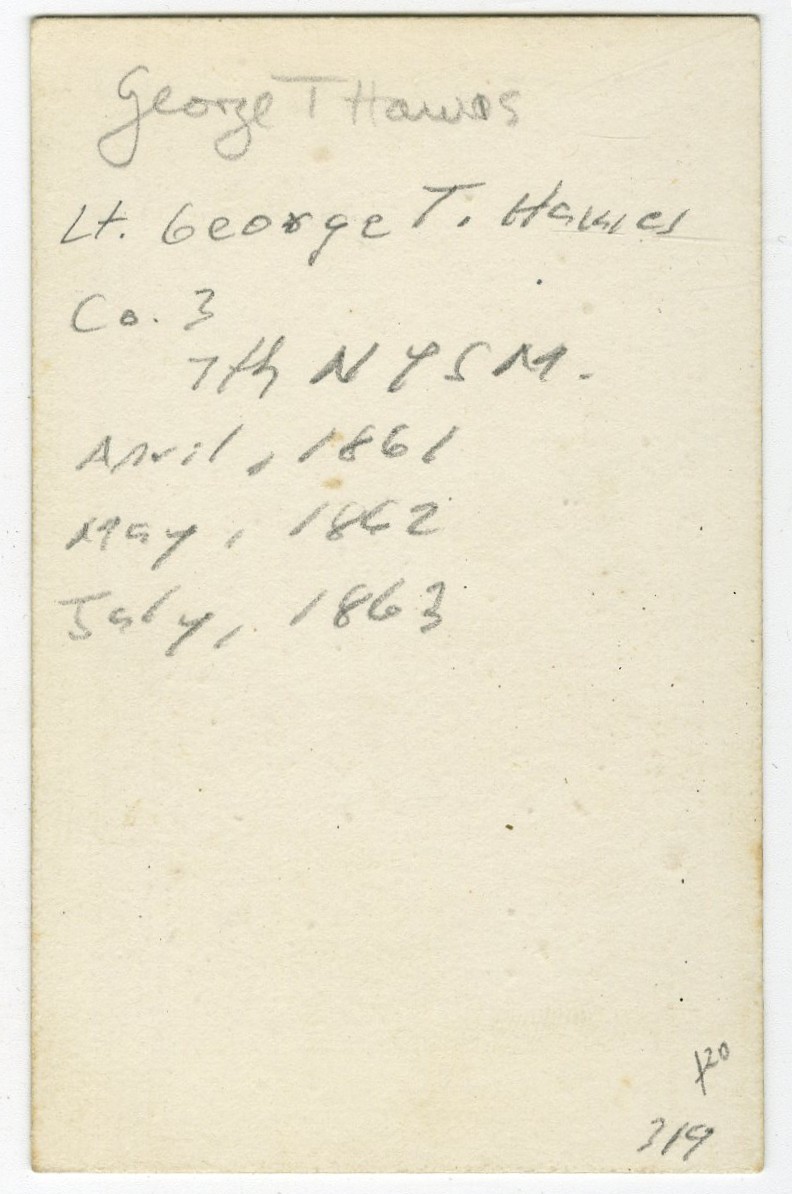 George T Hawes
Lt. George T. Hawes
Co. 3
7th N Y S M.
April, 1861
May, 1862
July, 1863
319